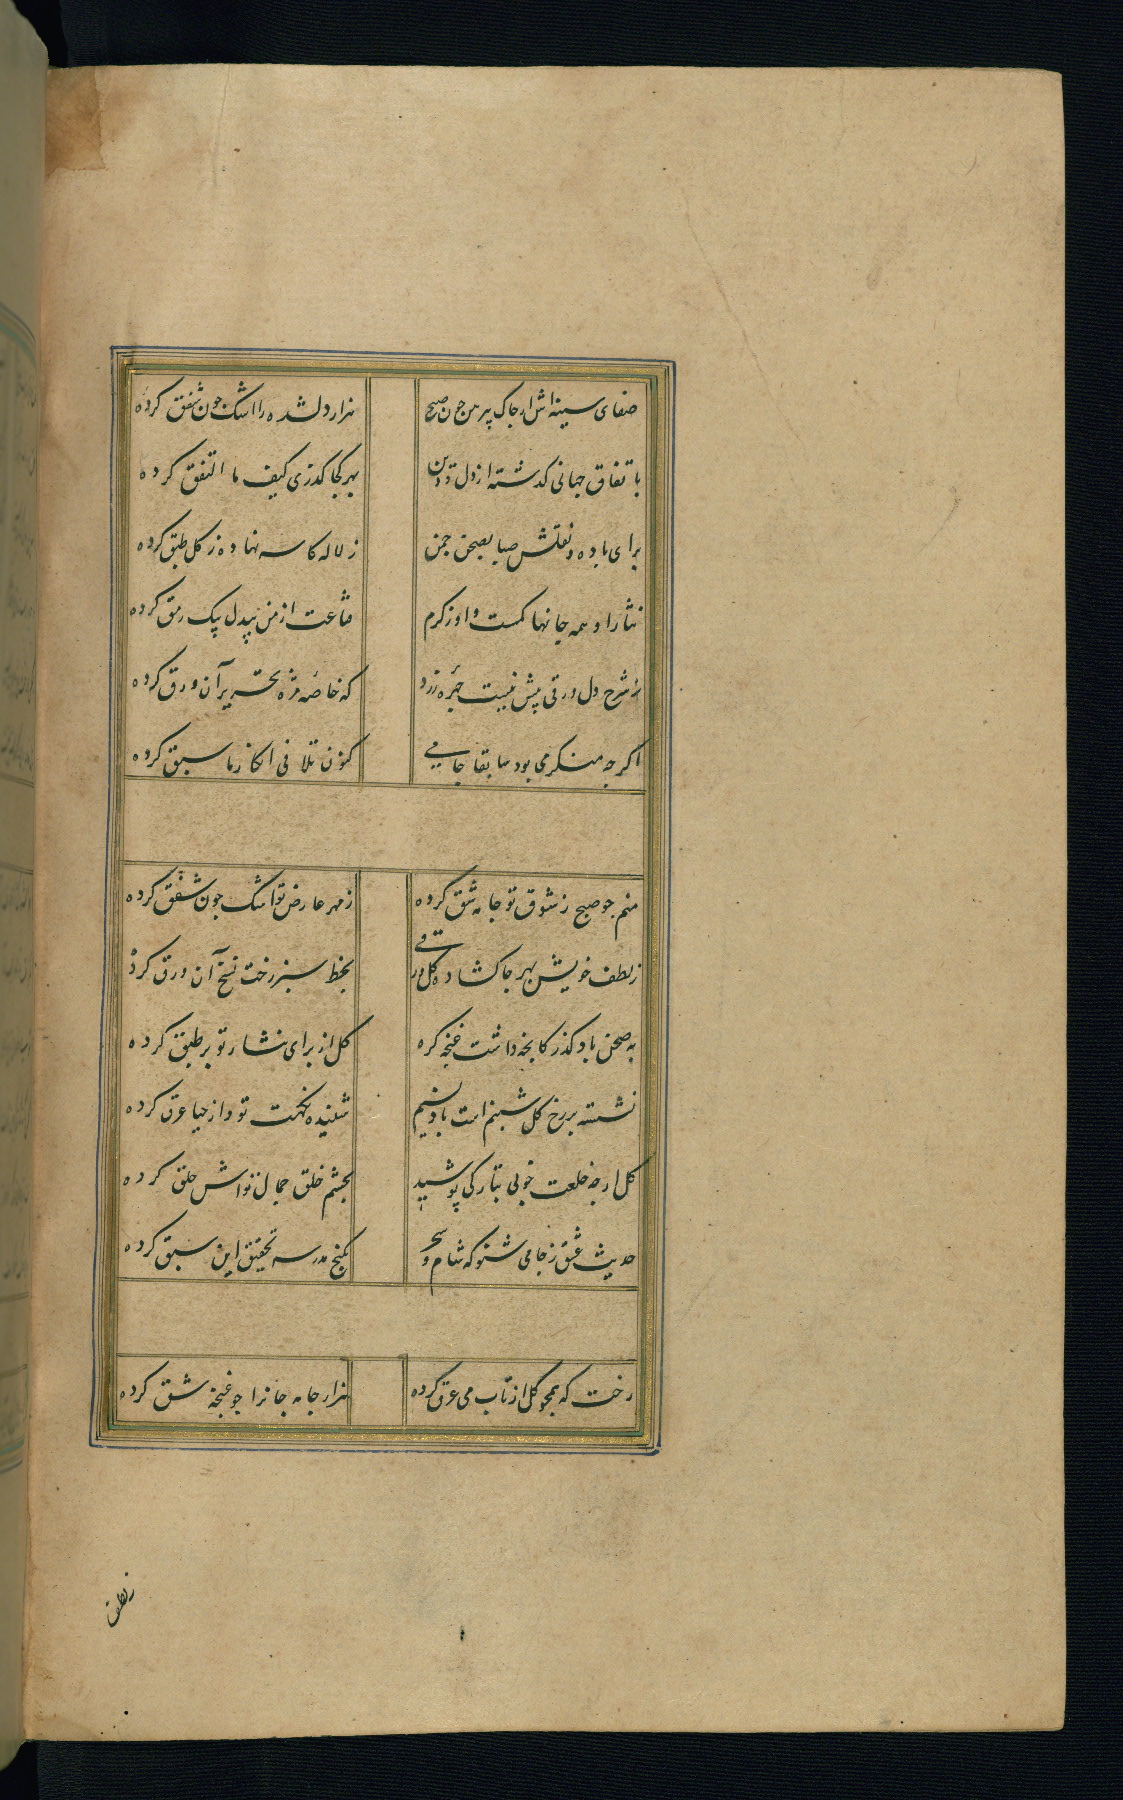 صفای سینه اش از چاک پیرهن چون صبح هزار دلشده را اشک چون شفق کرده
باتفاق جهانی گذشته از دل و دین بهر کجا گذری کیف ما اتفق کرده
برای باده و نقلش صبا بصحن چمن ز لاله کاسه نهاده ز گل طبق کرده
نثار او همه جانها کمست و او ز کرم قناعت از من بیدل بیک رمق کرده
ز شرح دل ورقی بیش نیست چهره زرد که خامه مژه تحریر آن ورق کرده
اگر چه منکر می بود سابقا جامی کنون تلافی انکار ما سبق کرده
منم چو صبح ز شوق تو جامه شق کرده ز مهر عارض تو اشک چون شفق کرده
ز لطف خویش بهر جا گشاده گل ورقی بخط سبز رخت نسخ آن ورق کرده
به صحن باد گذر کانچه داشت غنچه گره گل از برای نثار تو بر طبق کرده
نشسته بر رخ گل شبنم است یا ز نسیم شنیده نکهت تو و از حیا عرق کرده
گل ار چه خلعت خوبی بتازگی پوشید بچشم خلق جمال تواش خلق کرده
حدیث عشق ز جامی شنو که شام و سحر بکنج مدرسه تحقیق این سبق کرده
رخت که همچو گل از تاب می عرق کرده هزار جامه جانرا چو غنچه شق کرده
ز لطف